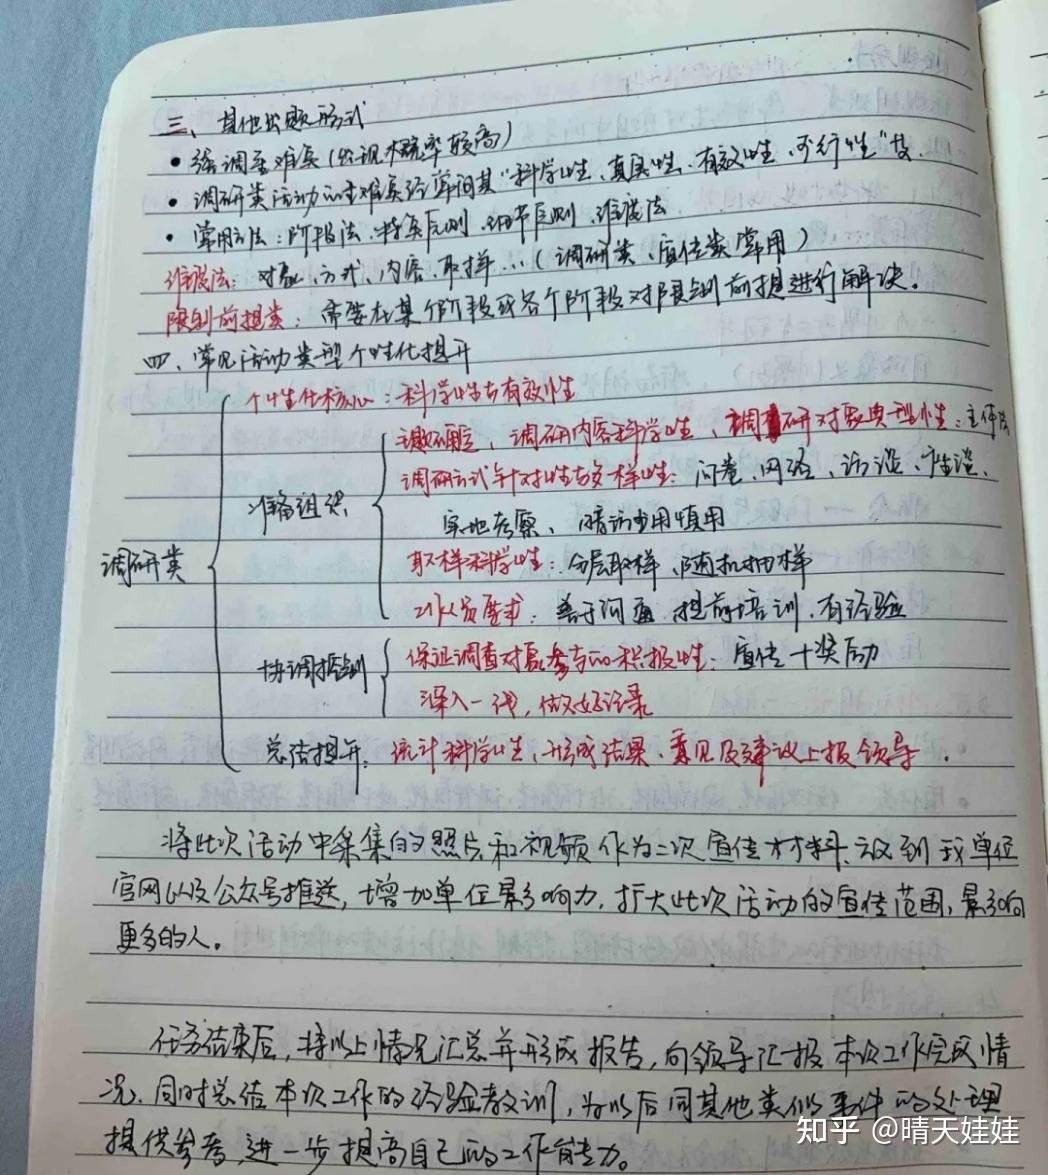 三、其他出题形式
• 强调重难点(出现概率较高)
• 调研类活动的重难点经常问其"科学性、真实性、有效性、可行性"及
• 常用方法:阶段法、特点原则、细节原则、维度法
维度法:对象、方式、内容、取样…(调研类、宣传类常用)
限制前提类:需要在某个阶段或各个阶段对限制前提进行解决。
四、常见活动类型个性化提升
个性化核心:科学性与有效性
主题确定、调研内容科学性、调研对象典型性:主体法
调研方式针对性与多样性:问卷、网络、访谈、座谈、
准备组织
实地考察、暗访少用慎用
调研类
取样科学性:分层取样、随机抽样
工作人员要求:善于沟通、提前培训、有经验
保证调查对象参与的积极性:宣传+奖励
协调控制
深入一线,做好记录
总结提升:统计科学性、形成结果、意见及建议上报领导.
将此次活动中采集的照片和视频作为二次宣传材料、放到我单位
官网以及公众号推送,增加单位影响力,扩大此次活动的宣传范围,影响
更多的人。
任务结束后,将以上情况汇总并形成报告,向领导汇报本次工作完成情
况、同时总结本次工作的经验教训,为以后同其他类似事件的处理
提供参考,进一步提高自己的工作能力。
知乎 @晴天娃娃